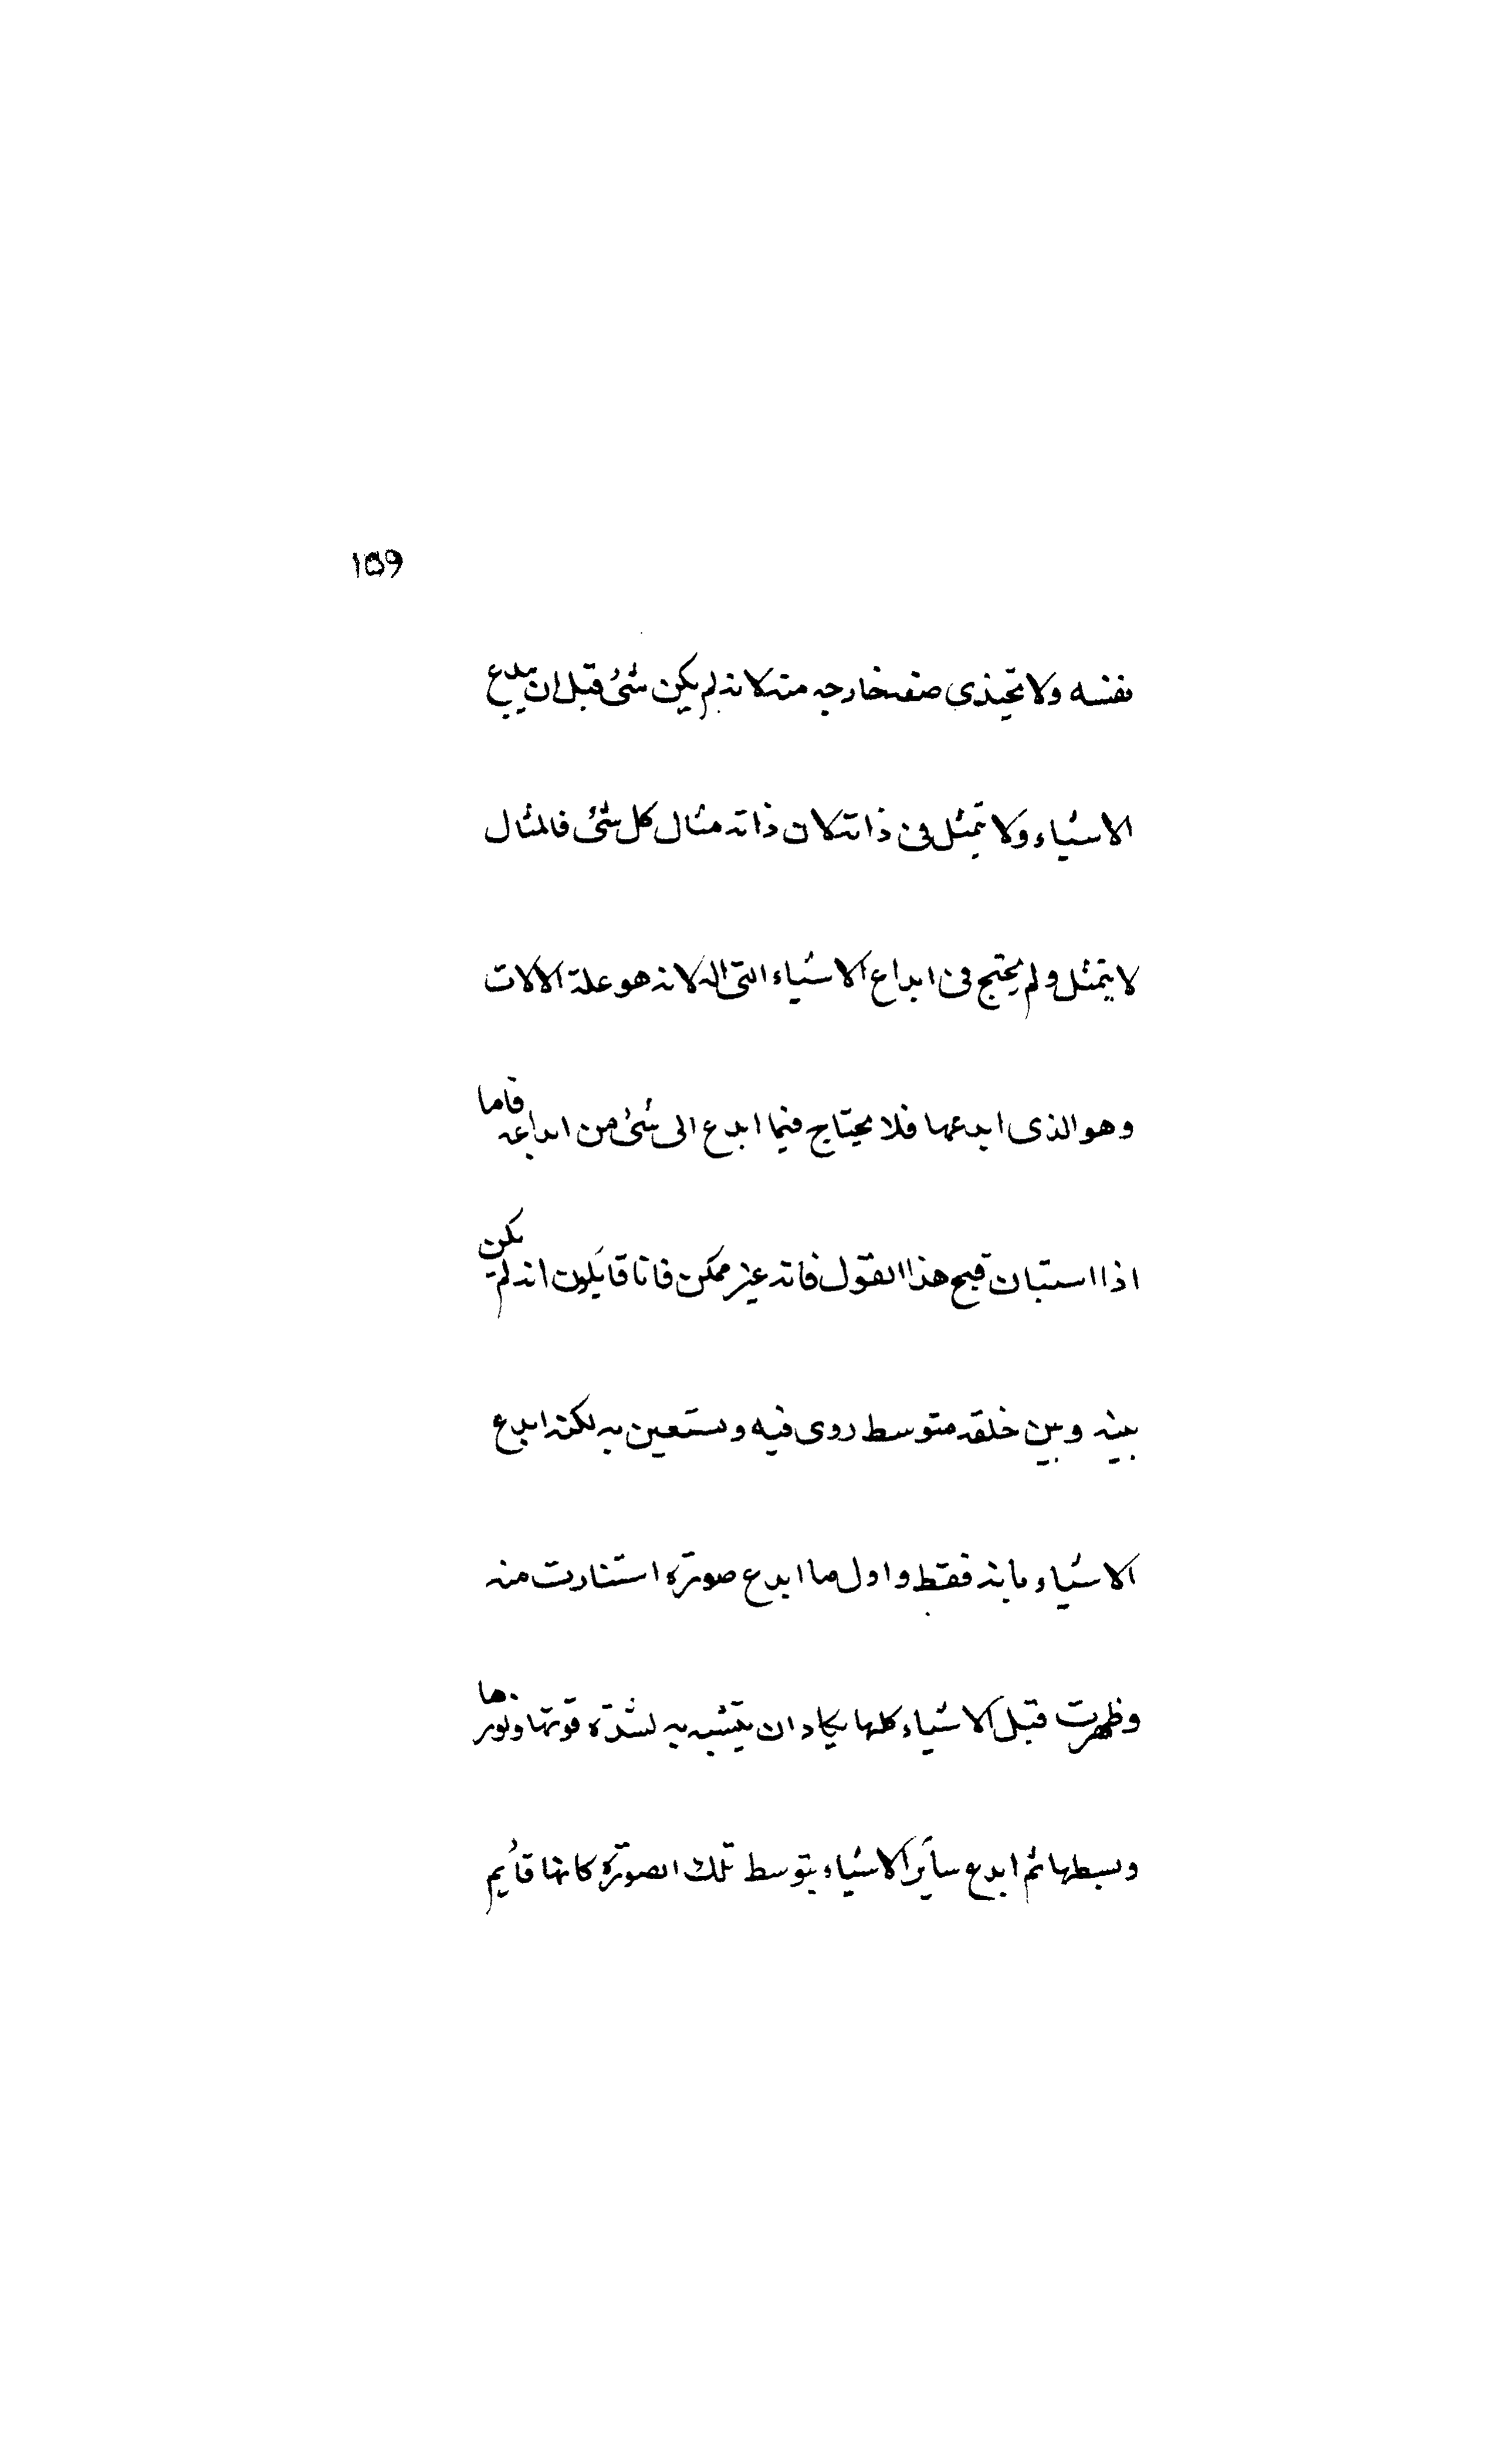 ١٥٩
نفسه ولا تحيذى صنعه خارجه منه لانه لم يكن شئ قبل ان يبدع
الاشياء ولا يتمثل فى ذاته لان ذاته مثال كل شئ فالمثال
لا يتمثل ولم يحتج فى ابداع الاشياء التى اله لانه هو علة الالات
وهو الذى ابدعها فلا يحتاج فيما ابدع الى شئ من ابداعه فاما
اذا استبان قبح هذا القول فانه غير ممكن فانا قايلون انه لم يكن
بينه وبين خلقه متوسط روى فيه ويستعين به لكنه ابدع
الاشياء بانه فقط واول ما ابدع صورة استنارت منه
وظهرت قبل الاشياء كلها يكاد ان يتشبه به لشدة قوتها ونورها
وبسطها ثم ابدع سائر الاشياء بتوسط تلك الصورة كانها قايم